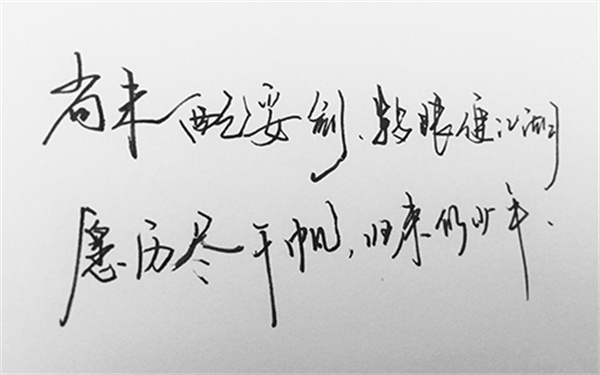 尚未配妥剑、转眼便江湖
愿历尽千帆,归来仍少年.